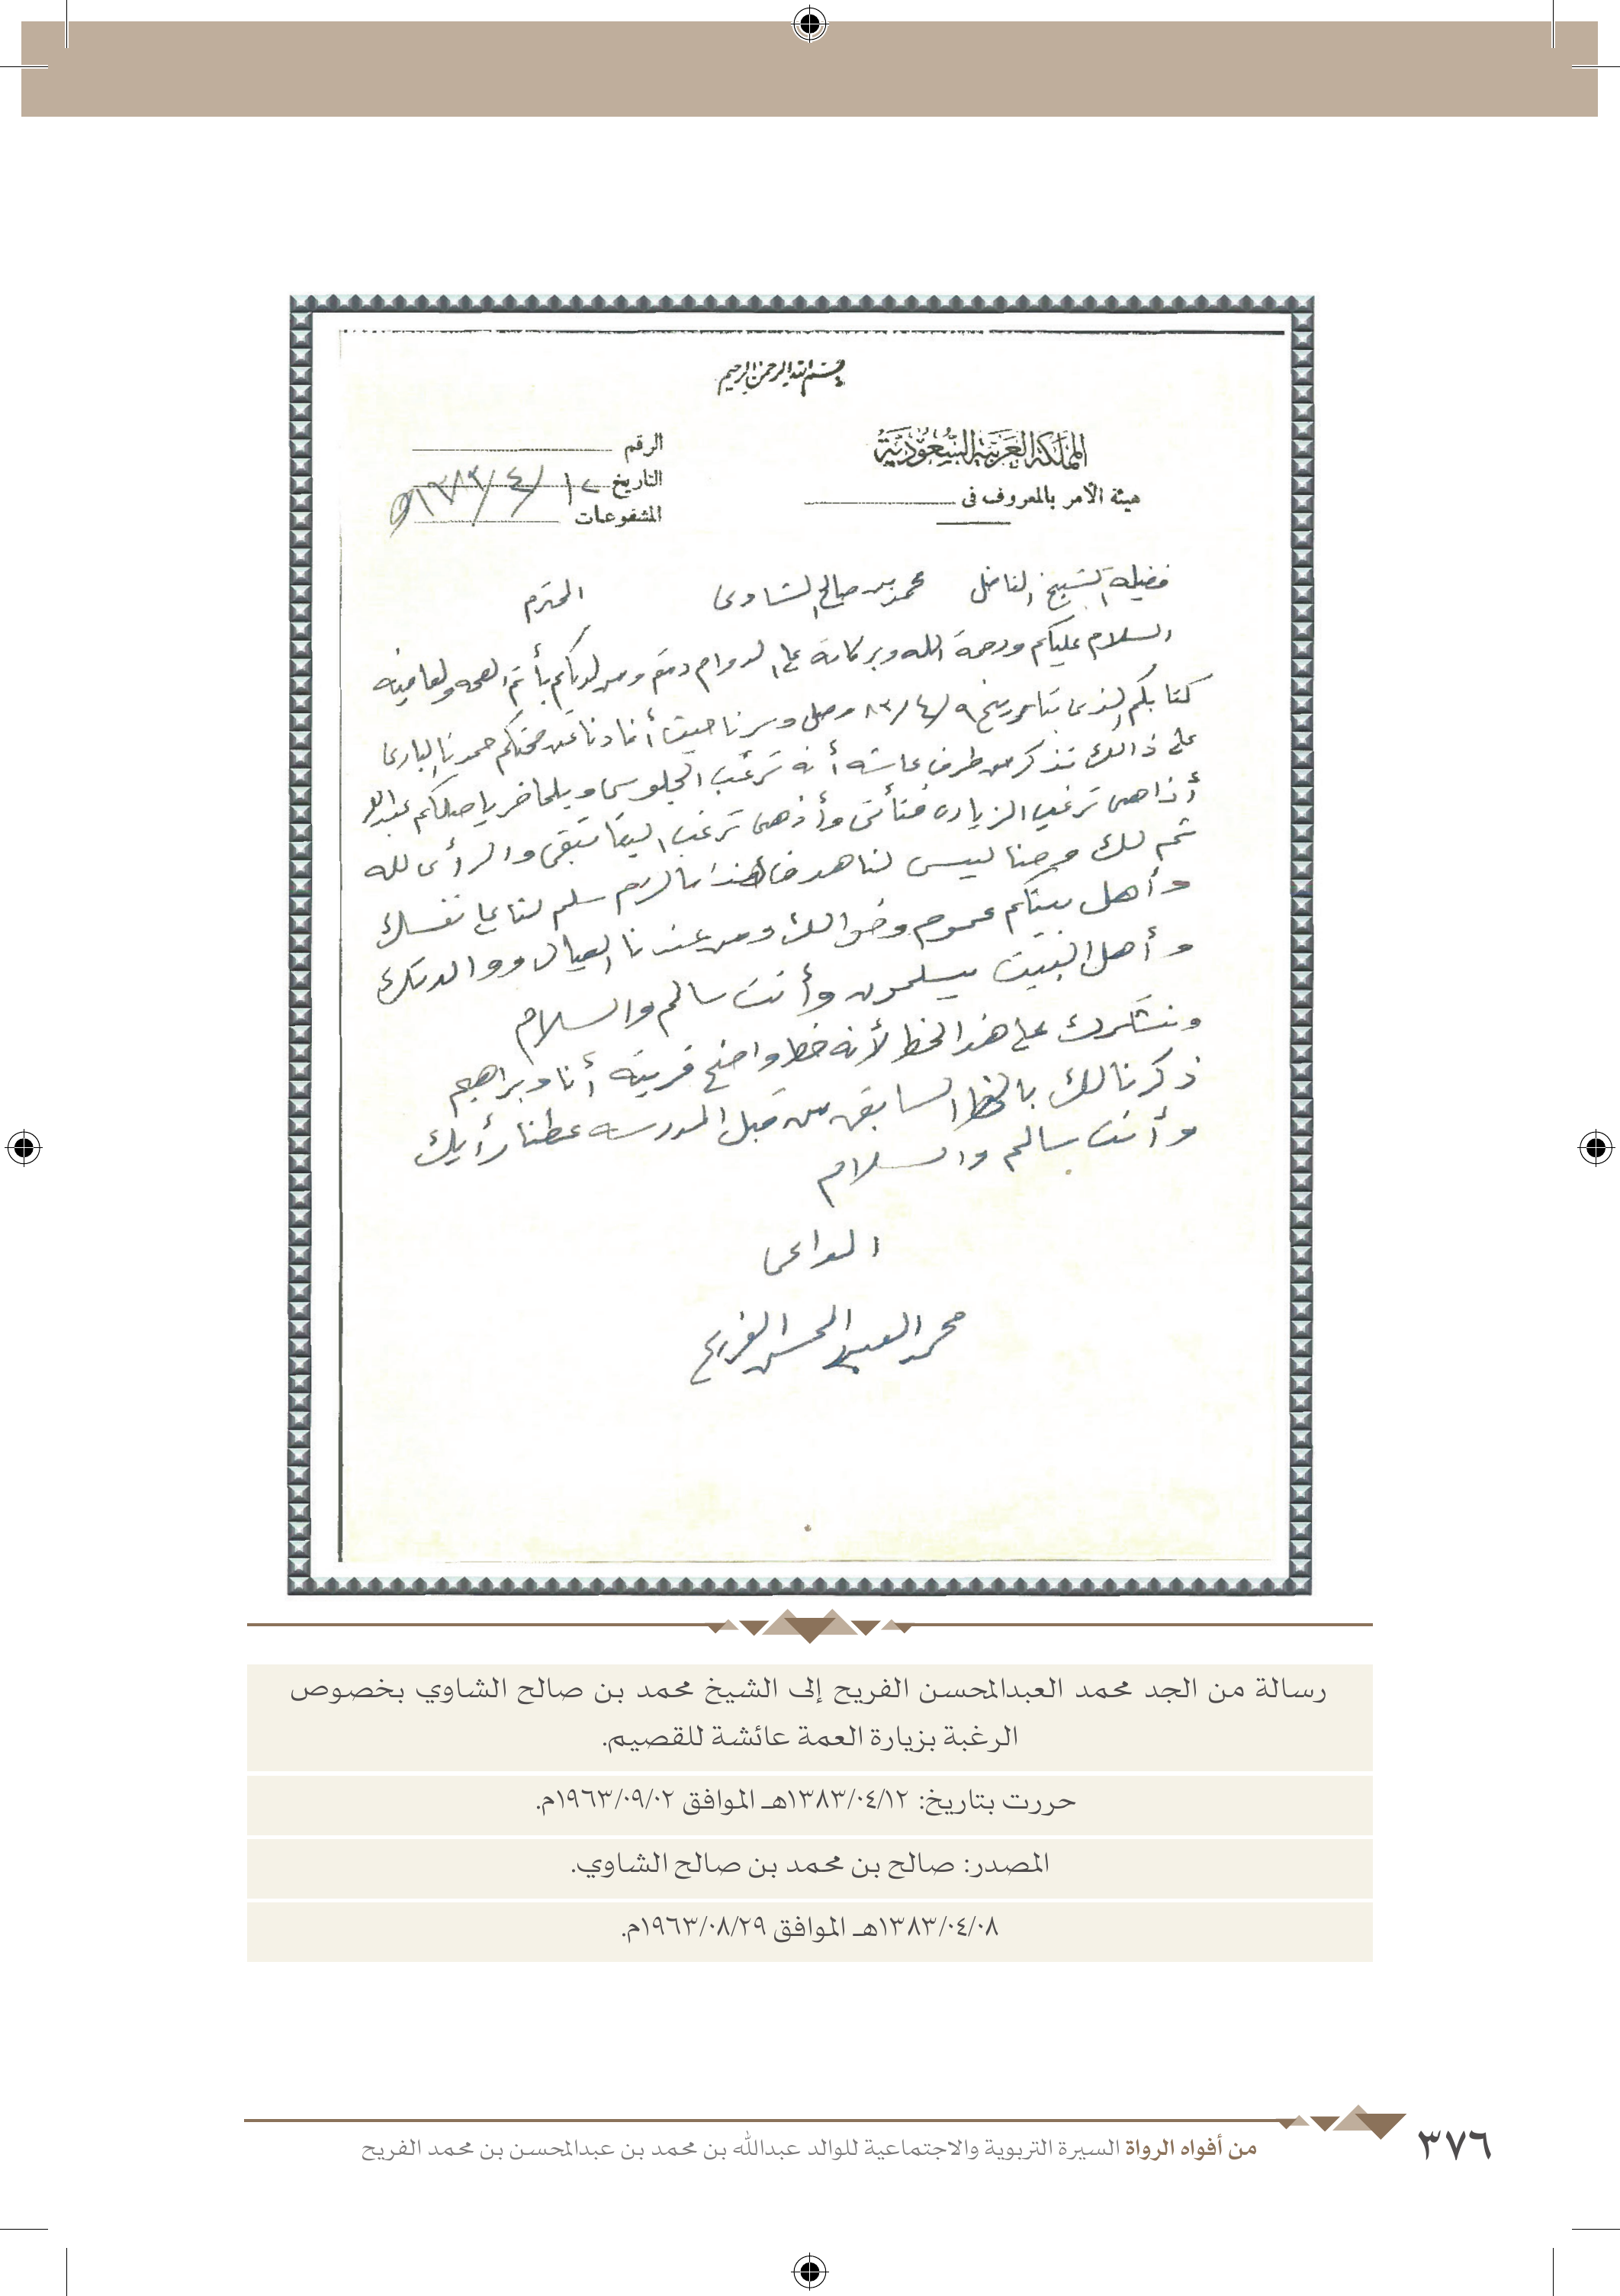 بسم الله الرحمن الرحيم
المملكة العربية السعودية
هيئة الأمر بالمعروف فى
الرقم
التاريخ ١٢/٤/١٣٨٣هـ
المشفوعات
فضيلة الشيخ الفاضل محمد بن صالح الشاوى المحترم
السلام عليكم ورحمة الله وبركاته على الدوام دمتم ومن لديكم بأتم الصحه ولعافيه
كتابكم الذى بتاريخ ٩/٤/٨٣ وصل وسرنا حيث أفادنا عن صحتكم حمدنا البارى
على ذالك تذكر من طرف عاشه أنه ترغب الجلوس
أذا هى ترغب الزياره فتأتى وأذ هى ترغب البقا تبقى والرأى لله
ثم لك وحنا ليس لنا هدف هذا مالزم سلم لنا على نفسك
وأهل بيتكم عموم وخوالك ومن عندنا العيال ووالدتك
وأهل البيت يسلمون وأنت سالم والسلام
ونشكرك على هذا الخط لأنه خط واضح قريته أنا وبراهيم
ذكرنا لك بالخط السابق من قبل المدرسه عطنا رأيك
وأنت سالم والسلام
الداعى
محمد العبد المحسن الفريح
رسالة من الجد محمد العبدالمحسن الفريح إلى الشيخ محمد بن صالح الشاوي بخصوص
الرغبة بزيارة العمة عائشة للقصيم.
حررت بتاريخ: ١٣٨٣/٠٤/١٢هـ الموافق ١٩٦٣/٠٩/٠٢م.
المصدر: صالح بن محمد بن صالح الشاوي.
١٣٨٣/٠٤/٠٨هـ الموافق ١٩٦٣/٠٨/٢٩م.
من أفواه الرواة السيرة التربوية والاجتماعية للوالد عبدالله بن محمد بن عبدالمحسن بن محمد الفريح
٣٧٦